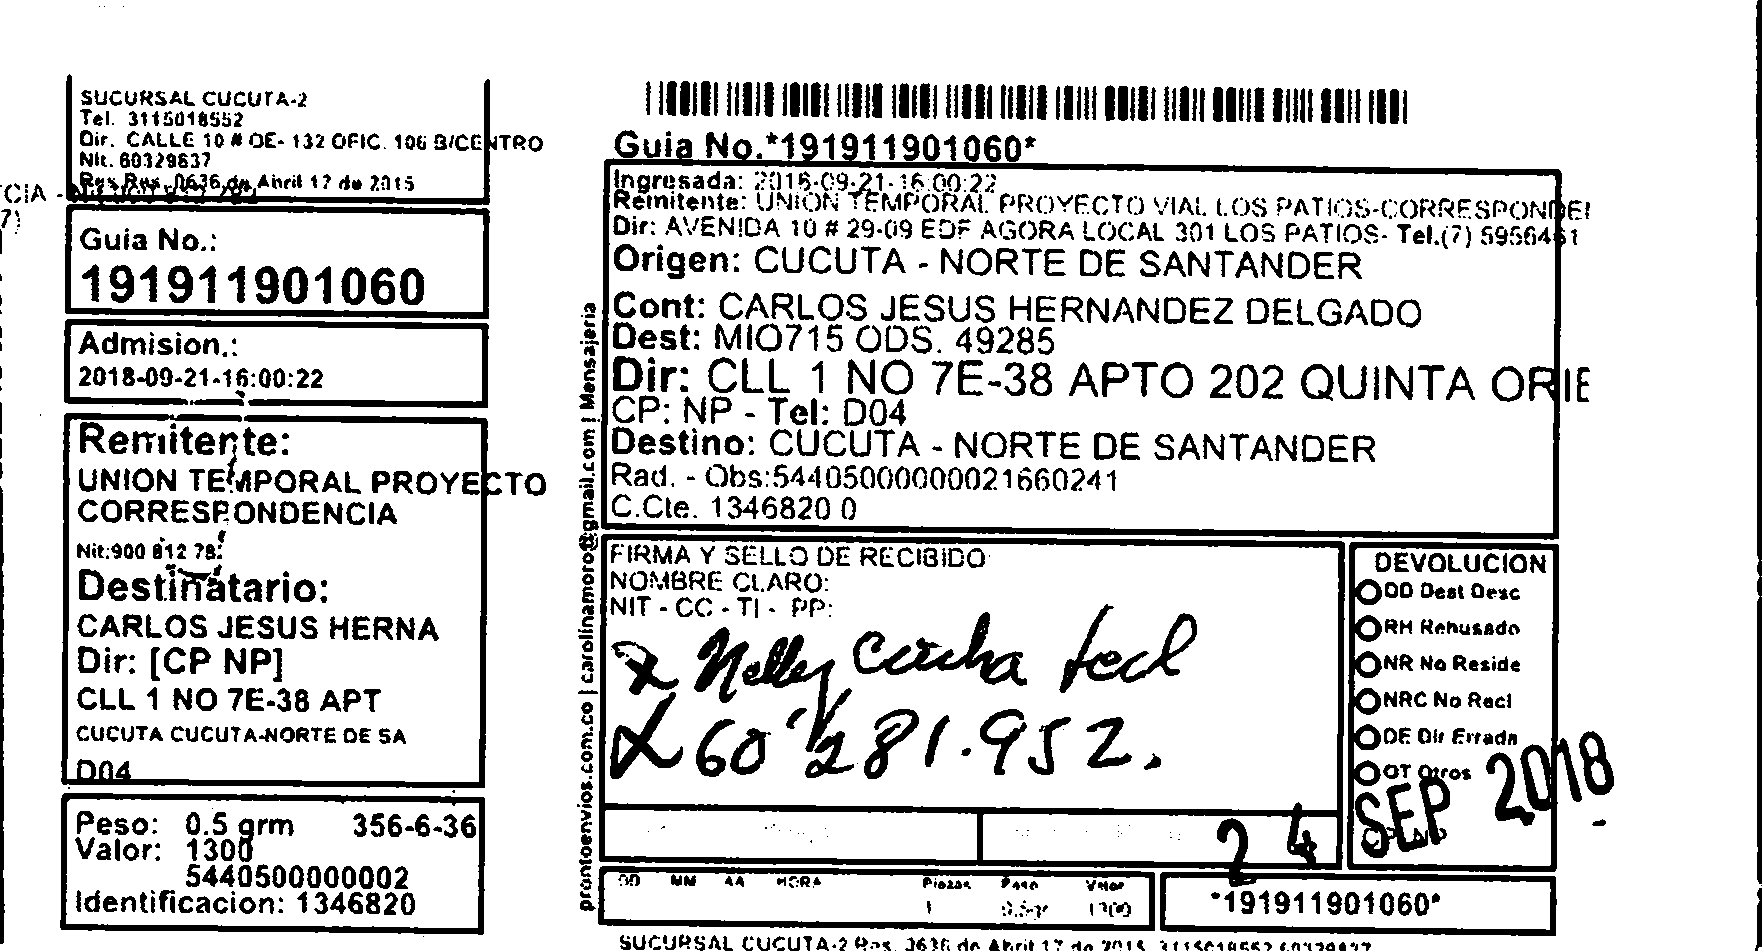 SUCURSAL CUCUTA-2
Tel. 3115018552
Dir. CALLE 10 # OE- 132 OFIC. 106 B/CENTRO
Nit. 60329837
Res.Res. 0636 de Abril 17 de 2015
CIA -
7)
Guia No.:
191911901060
Admision.:
2018-09-21-16:00:22
Remitente:
UNION TEMPORAL PROYECTO
CORRESPONDENCIA
Nit:900 812 78
Destinatario:
CARLOS JESUS HERNA
Dir: [CP NP]
CLL 1 NO 7E-38 APT
CUCUTA CUCUTA-NORTE DE SA
D04
Peso: 0.5 grm 356-6-36
Valor: 1300
5440500000002
Identificacion: 1346820
prontoenvios.com.co | carolinamoro@gmail.com | Mensajeria
Guia No.*191911901060*
Ingresada: 2018-09-21-16:00:22
Remitente: UNION TEMPORAL PROYECTO VIAL LOS PATIOS-CORRESPONDE
Dir: AVENIDA 10 # 29-09 EDF AGORA LOCAL 301 LOS PATIOS- Tel.(7) 5956461
Origen: CUCUTA - NORTE DE SANTANDER
Cont: CARLOS JESUS HERNANDEZ DELGADO
Dest: MIO715 ODS. 49285
Dir: CLL 1 NO 7E-38 APTO 202 QUINTA ORIE
CP: NP - Tel: D04
Destino: CUCUTA - NORTE DE SANTANDER
Rad. - Obs:54405000000021660241
C.Cte. 1346820 0
FIRMA Y SELLO DE RECIBIDO
NOMBRE CLARO:
NIT - CC - TI - PP:
x Nelley
x 60'281.952.
DEVOLUCION
DD Dest Desc
RH Rehusado
NR No Reside
NRC No Recl
DE Dir Errada
OT Otros
24 SEP 2018
DD MM AA HORA Piezas Peso Valor
1 0.5gr 1300
*191911901060*
SUCURSAL CUCUTA-2 Res. 3636 de Abril 17 de 2015 3115018552 60329837